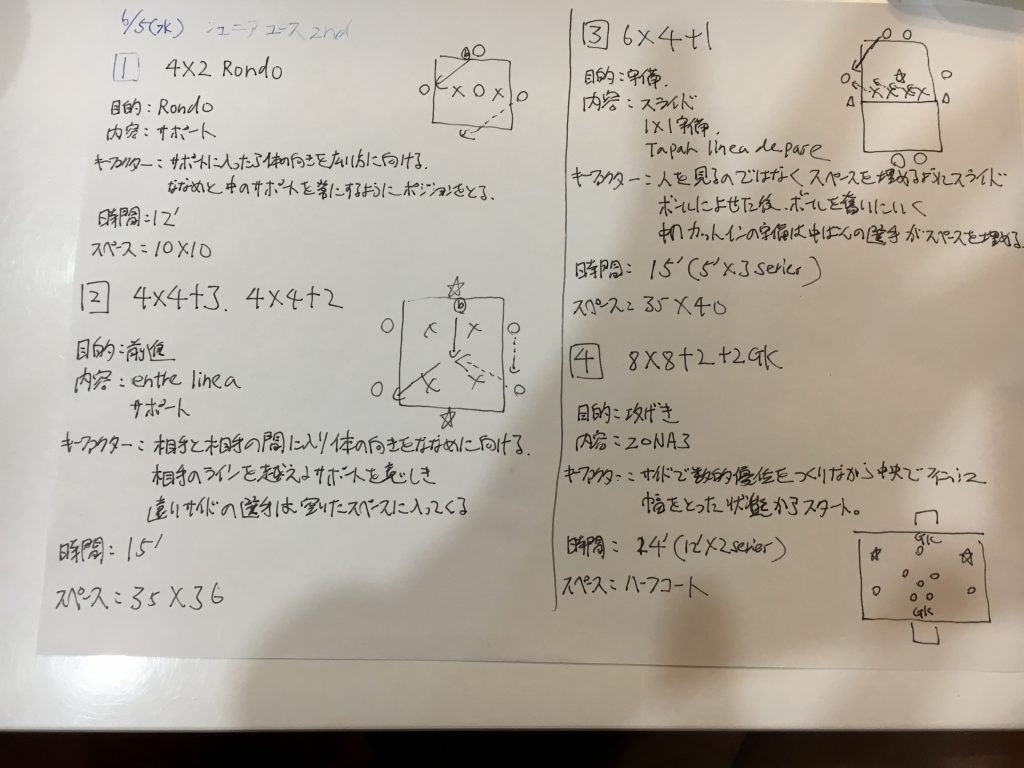 6/5(水) ジュニアユース 2nd
1 4×2 Rondo
目的：Rondo
内容：サポート
キーファクター：サポートに入ったら体の向きを広い方に向ける.
ななめと中のサポートを常にするようにポジションをとる.
時間：12'
スペース：10×10
2 4×4+3. 4×4+2
目的：前進
内容：entre linea
サポート
キーファクター：相手と相手の間に入り体の向きをななめに向ける.
相手のラインを越えるサポートを意しき
遠いサイドの選手は空いたスペースに入ってくる
時間：15'
スペース：35×36
3 6×4+1
目的：守備.
内容：スライド
1×1守備.
Tapar linea de pase
キーファクター：人を見るのではなくスペースを埋めるようにスライド
ボールによせた後、ボールを奪いにいく
中カットインの守備は中ばんの選手がスペースを埋める.
時間：15'(5'×3 serier)
スペース：35×40
4 8×8+2+2GK
目的：攻げき
内容：ZONA3
キーファクター：サイドで数的優位をつくりながら中央でフィニッシュ
幅をとった状態からスタート。
時間：24'(12'×2 serier)
スペース：ハーフコート
GK
GK